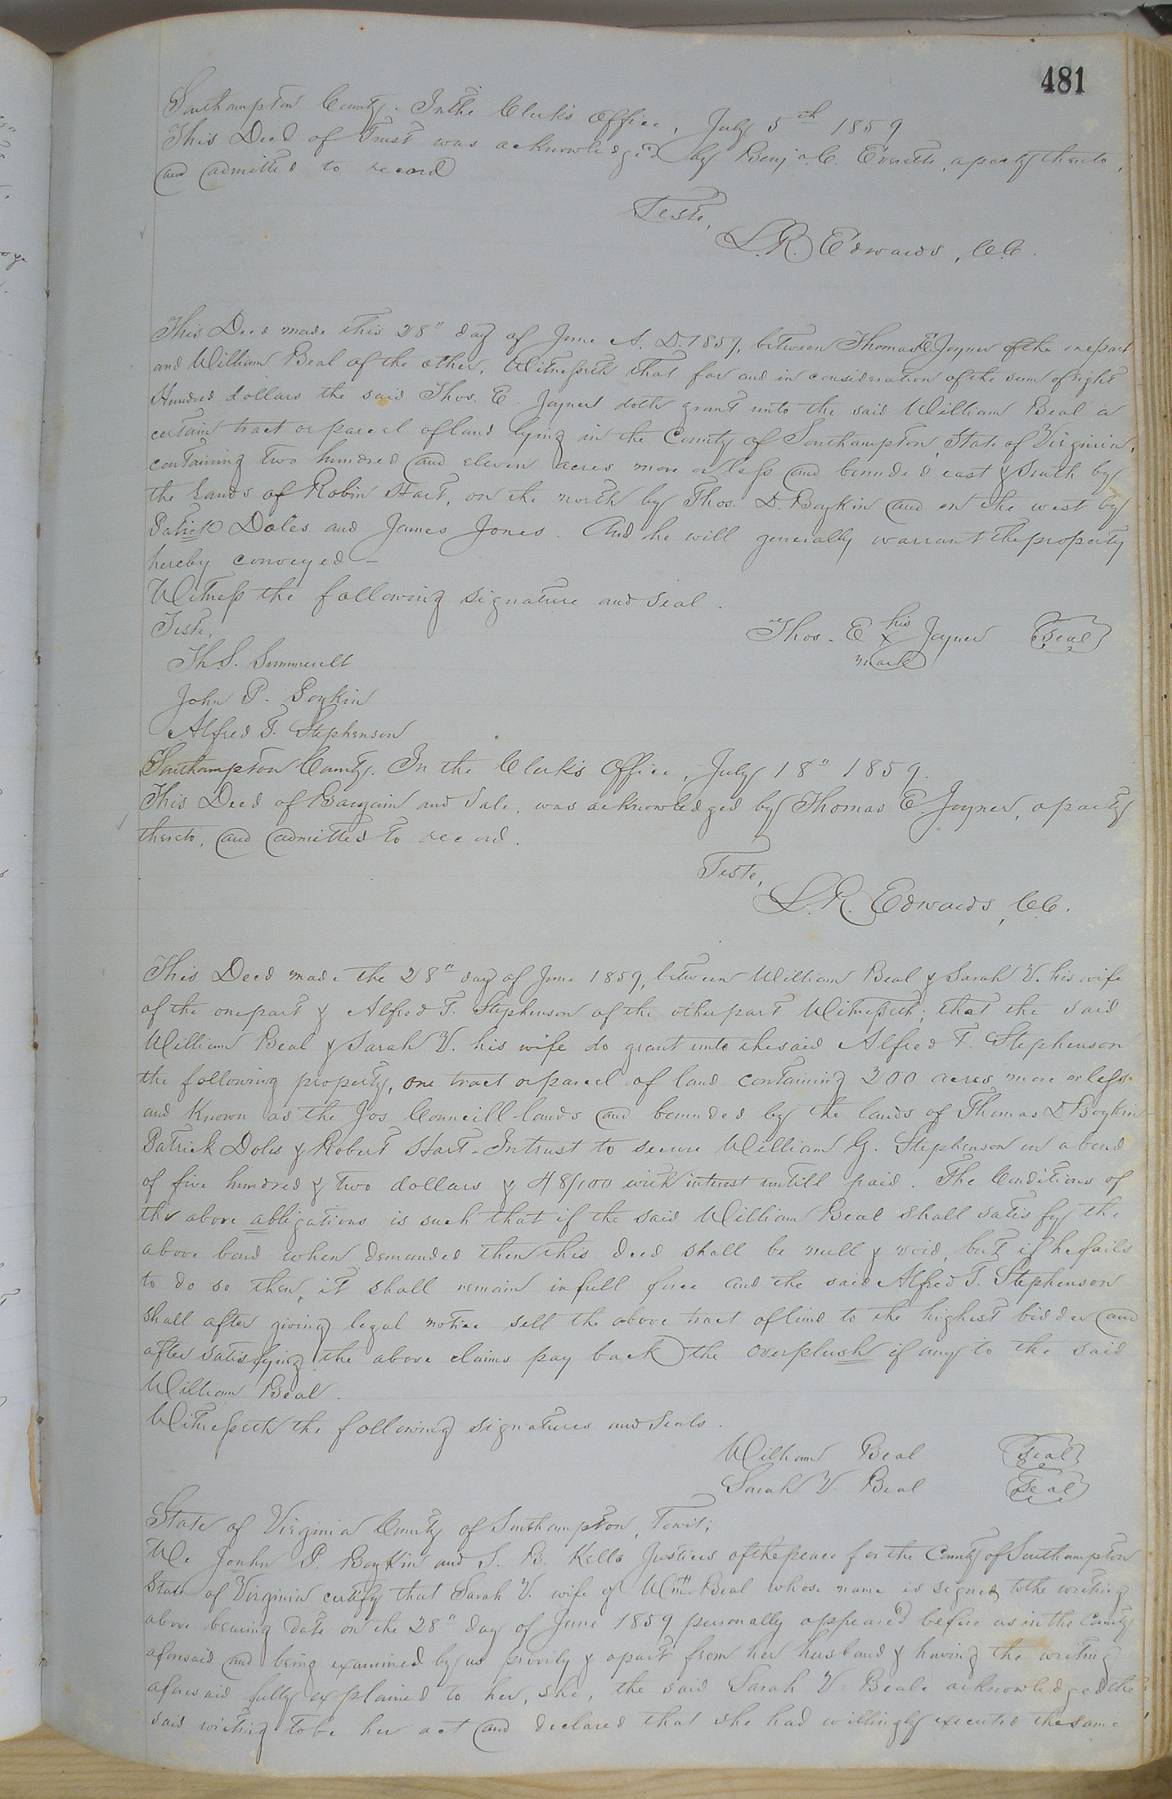 481
Southampton County. In the Clerk's Office, July 5th 1859
This Deed of Trust was acknowledged by Benj. C. Everett, a party thereto,
and admitted to record
Teste,
L. R. Edwards, C.C.
This Deed made this 28" day of June A. D. 1859, between Thomas E. Joyner of the one part
and William Beal of the other, Witnesseth that for and in consideration of the sum of eight
Hundred dollars the said Thos. E. Joyner doth grant unto the said William Beal a
certain tract or parcel of land lying in the County of Southampton, State of Virginia,
containing two hundred and eleven acres more or less and bounded east & south by
the Lands of Robin Hart, on the north by Thos. D. Boykin and on the west by
Patrick Doles and James Jones. And he will generally warrant the property
hereby conveyed -
Witness the following signature and seal.
Teste,
Thos. E his x mark Joyner (Seal)
Th S. Summerell
John P. Boykin
Alfred T. Stephenson
Southampton County. In the Clerk's Office, July 18" 1859.
This Deed of Bargain and Sale, was acknowledged by Thomas E. Joyner, a party
thereto, and admitted to record.
Teste,
L. R. Edwards, C.C.
This Deed made the 28" day of June 1859, between William Beal & Sarah V. his wife
of the one part & Alfred T. Stephenson of the other part Witnesseth; that the said
William Beal & Sarah V. his wife do grant unto the said Alfred T. Stephenson
the following property, one tract or parcel of land containing 200 acres more or less
and known as the Jos Conneill lands and bounded by the lands of Thomas D Boykin
Patrick Doles & Robert Hart - In trust to secure William G. Stephenson in a bond
of five hundred & two dollars & 48/100 with interest untill paid. The Conditions of
the above abligations is such that if the said William Beal shall satisfy the
above bond when demanded then this deed shall be null & void, but if he fails
to do so then, it shall remain in full force and the said Alfred T. Stephenson
shall after giving legal notice sell the above tract of land to the highest bidder and
after satisfying the above claims pay back the overplush if any to the said
William Beal.
Witnesseth the following signatures and seals.
William Beal (Seal)
Sarah V. Beal (Seal)
State of Virginia County of Southampton, Towit;
We Jonhn P. Boykin and S. B. Kello Justices of the peace for the County of Southampton
State of Virginia certify that Sarah V. wife of Wm. Beal whose name is signed to the writing
above bearing date on the 28" day of June 1859 personally appeared before us in the County
aforesaid and being examined by us privily & apart from her husband & having the writing
aforesaid fully explained to her, she, the said Sarah V. Beale acknowledged the
said writing to be her act and declared that she had willingly executed the same